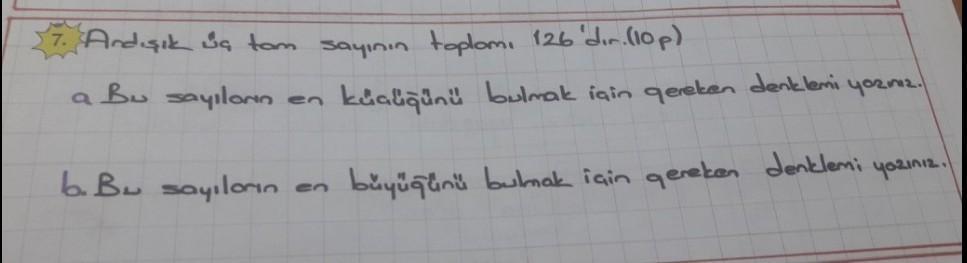 7. Ardışık üç tam sayının toplamı 126'dır. (10p)
a. Bu sayıların en küçüğünü bulmak için gereken denklemi yazınız.
b. Bu sayıların en büyüğünü bulmak için gereken denklemi yazınız.